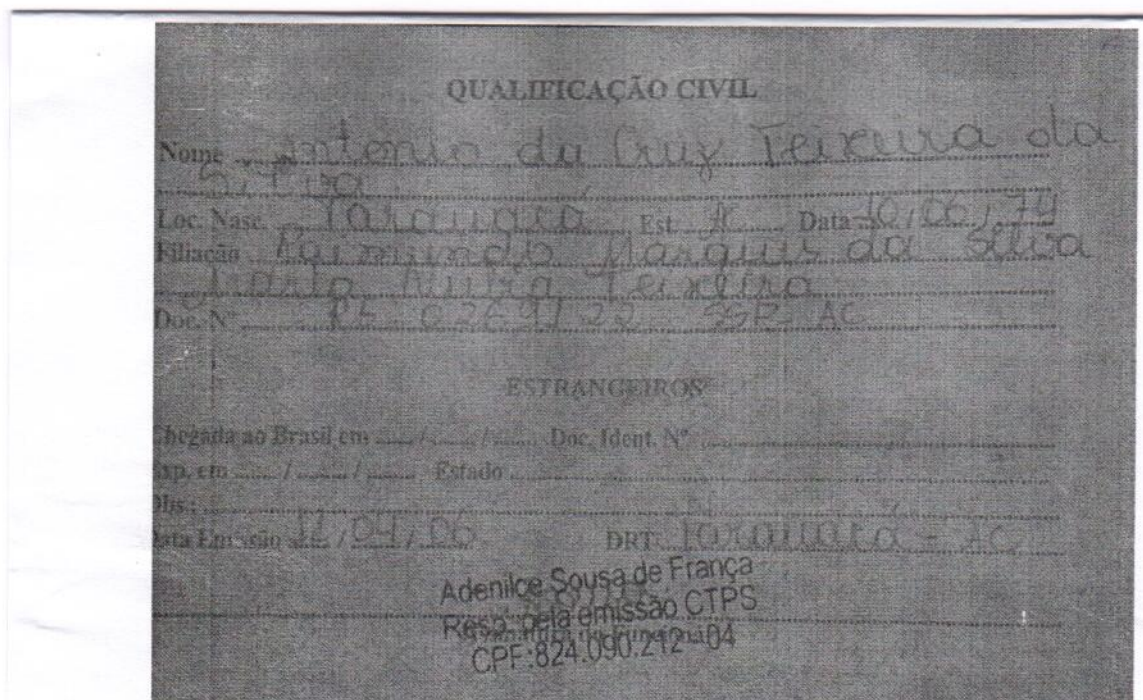 QUALIFICAÇÃO CIVIL
Nome Antonio da Cruz Teixeira da
Silva
Loc. Nasc. Tarauacá Est. AC Data 10/06/74
Filiação Raimundo Marques da Silva
Maria Teixeira
Doc. Nº RG 0269722 SSP AC
ESTRANGEIROS
Chegada ao Brasil em / / Doc. Ident. Nº
Exp. em / / Estado
Obs.:
Data Emissão 11/04/06 DRT: Tarauacá - AC
Adenilce Sousa de França
Resp. pela emissão CTPS
CPF:824.090.212-04